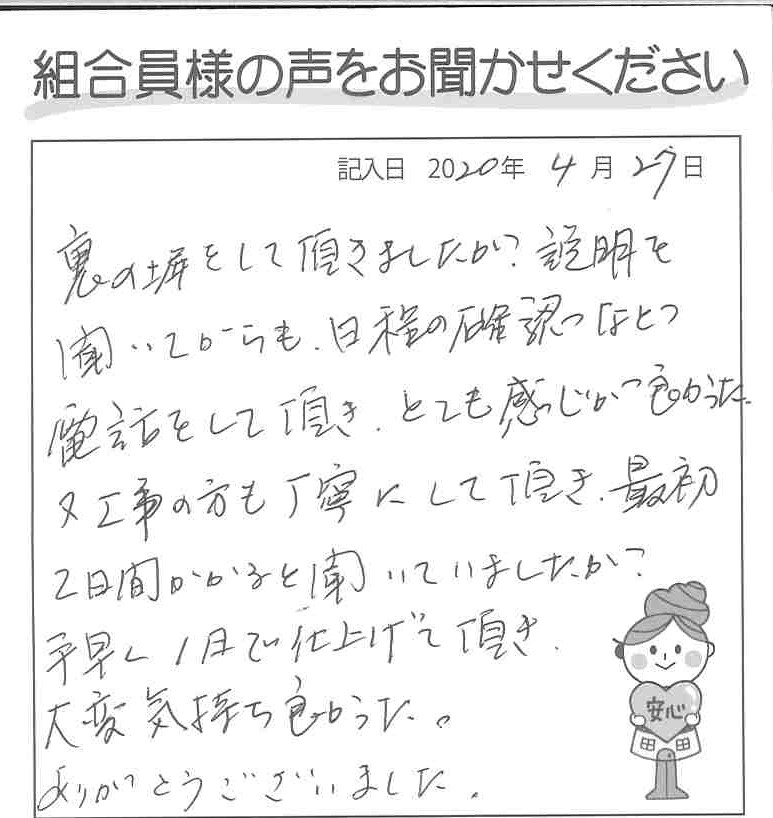 組合員様の声をお聞かせください
記入日 2020年 4月27日
裏の塀をして頂きましたが、説明を
聞いてからも、日程の確認などで
電話をして頂き、とても感じが良かった。
又工事の方も丁寧にして頂き、最初
2日間かかると聞いていましたが、
手早く1日で仕上げて頂き、
大変気持ち良かった。
ありがとうございました。
安心